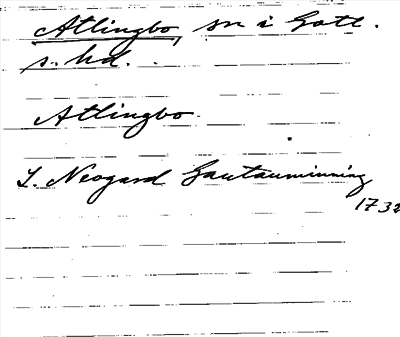 Atlingbo, sn i Gotl.
s. hd.
Atlingbo.
L. Neogard Gautauminning
1732